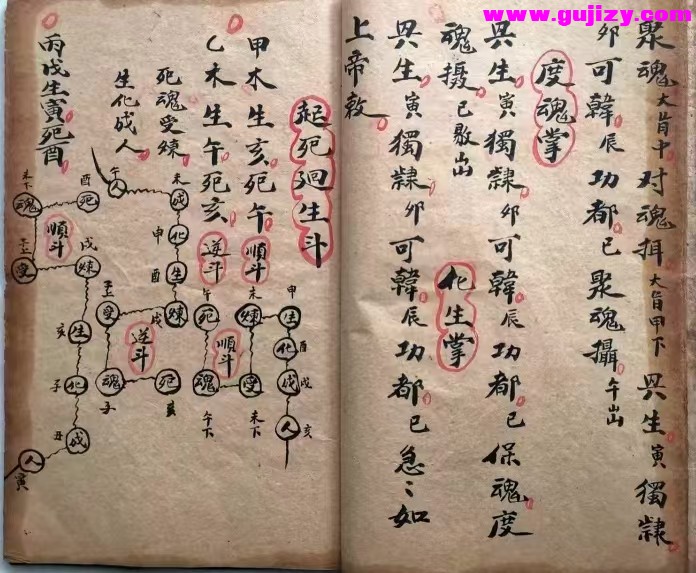 www.gujizy.com
聚魂大旨中对魂大旨甲下㒷生寅獨隸
卯可韓辰功都巳聚魂攝午出
度魂掌
㒷生寅獨隸卯可韓辰功都巳保魂度
魂攝巳出
化生掌
㒷生寅獨隸卯可韓辰功都巳急〻如
上帝敕
起死迴生斗
甲木生亥死午 順斗
乙木生午死亥 逆斗
死魂受煉
生化成人
丙戊生寅死酉
順斗
生申
化酉
成戌
人亥
煉未
受未下
魂午下
死午
順斗
成未
化申
生酉
煉戌
人午
受
魂子
死亥
逆斗
魂未下
死酉
受
煉戌
生亥
化子
成丑
人寅